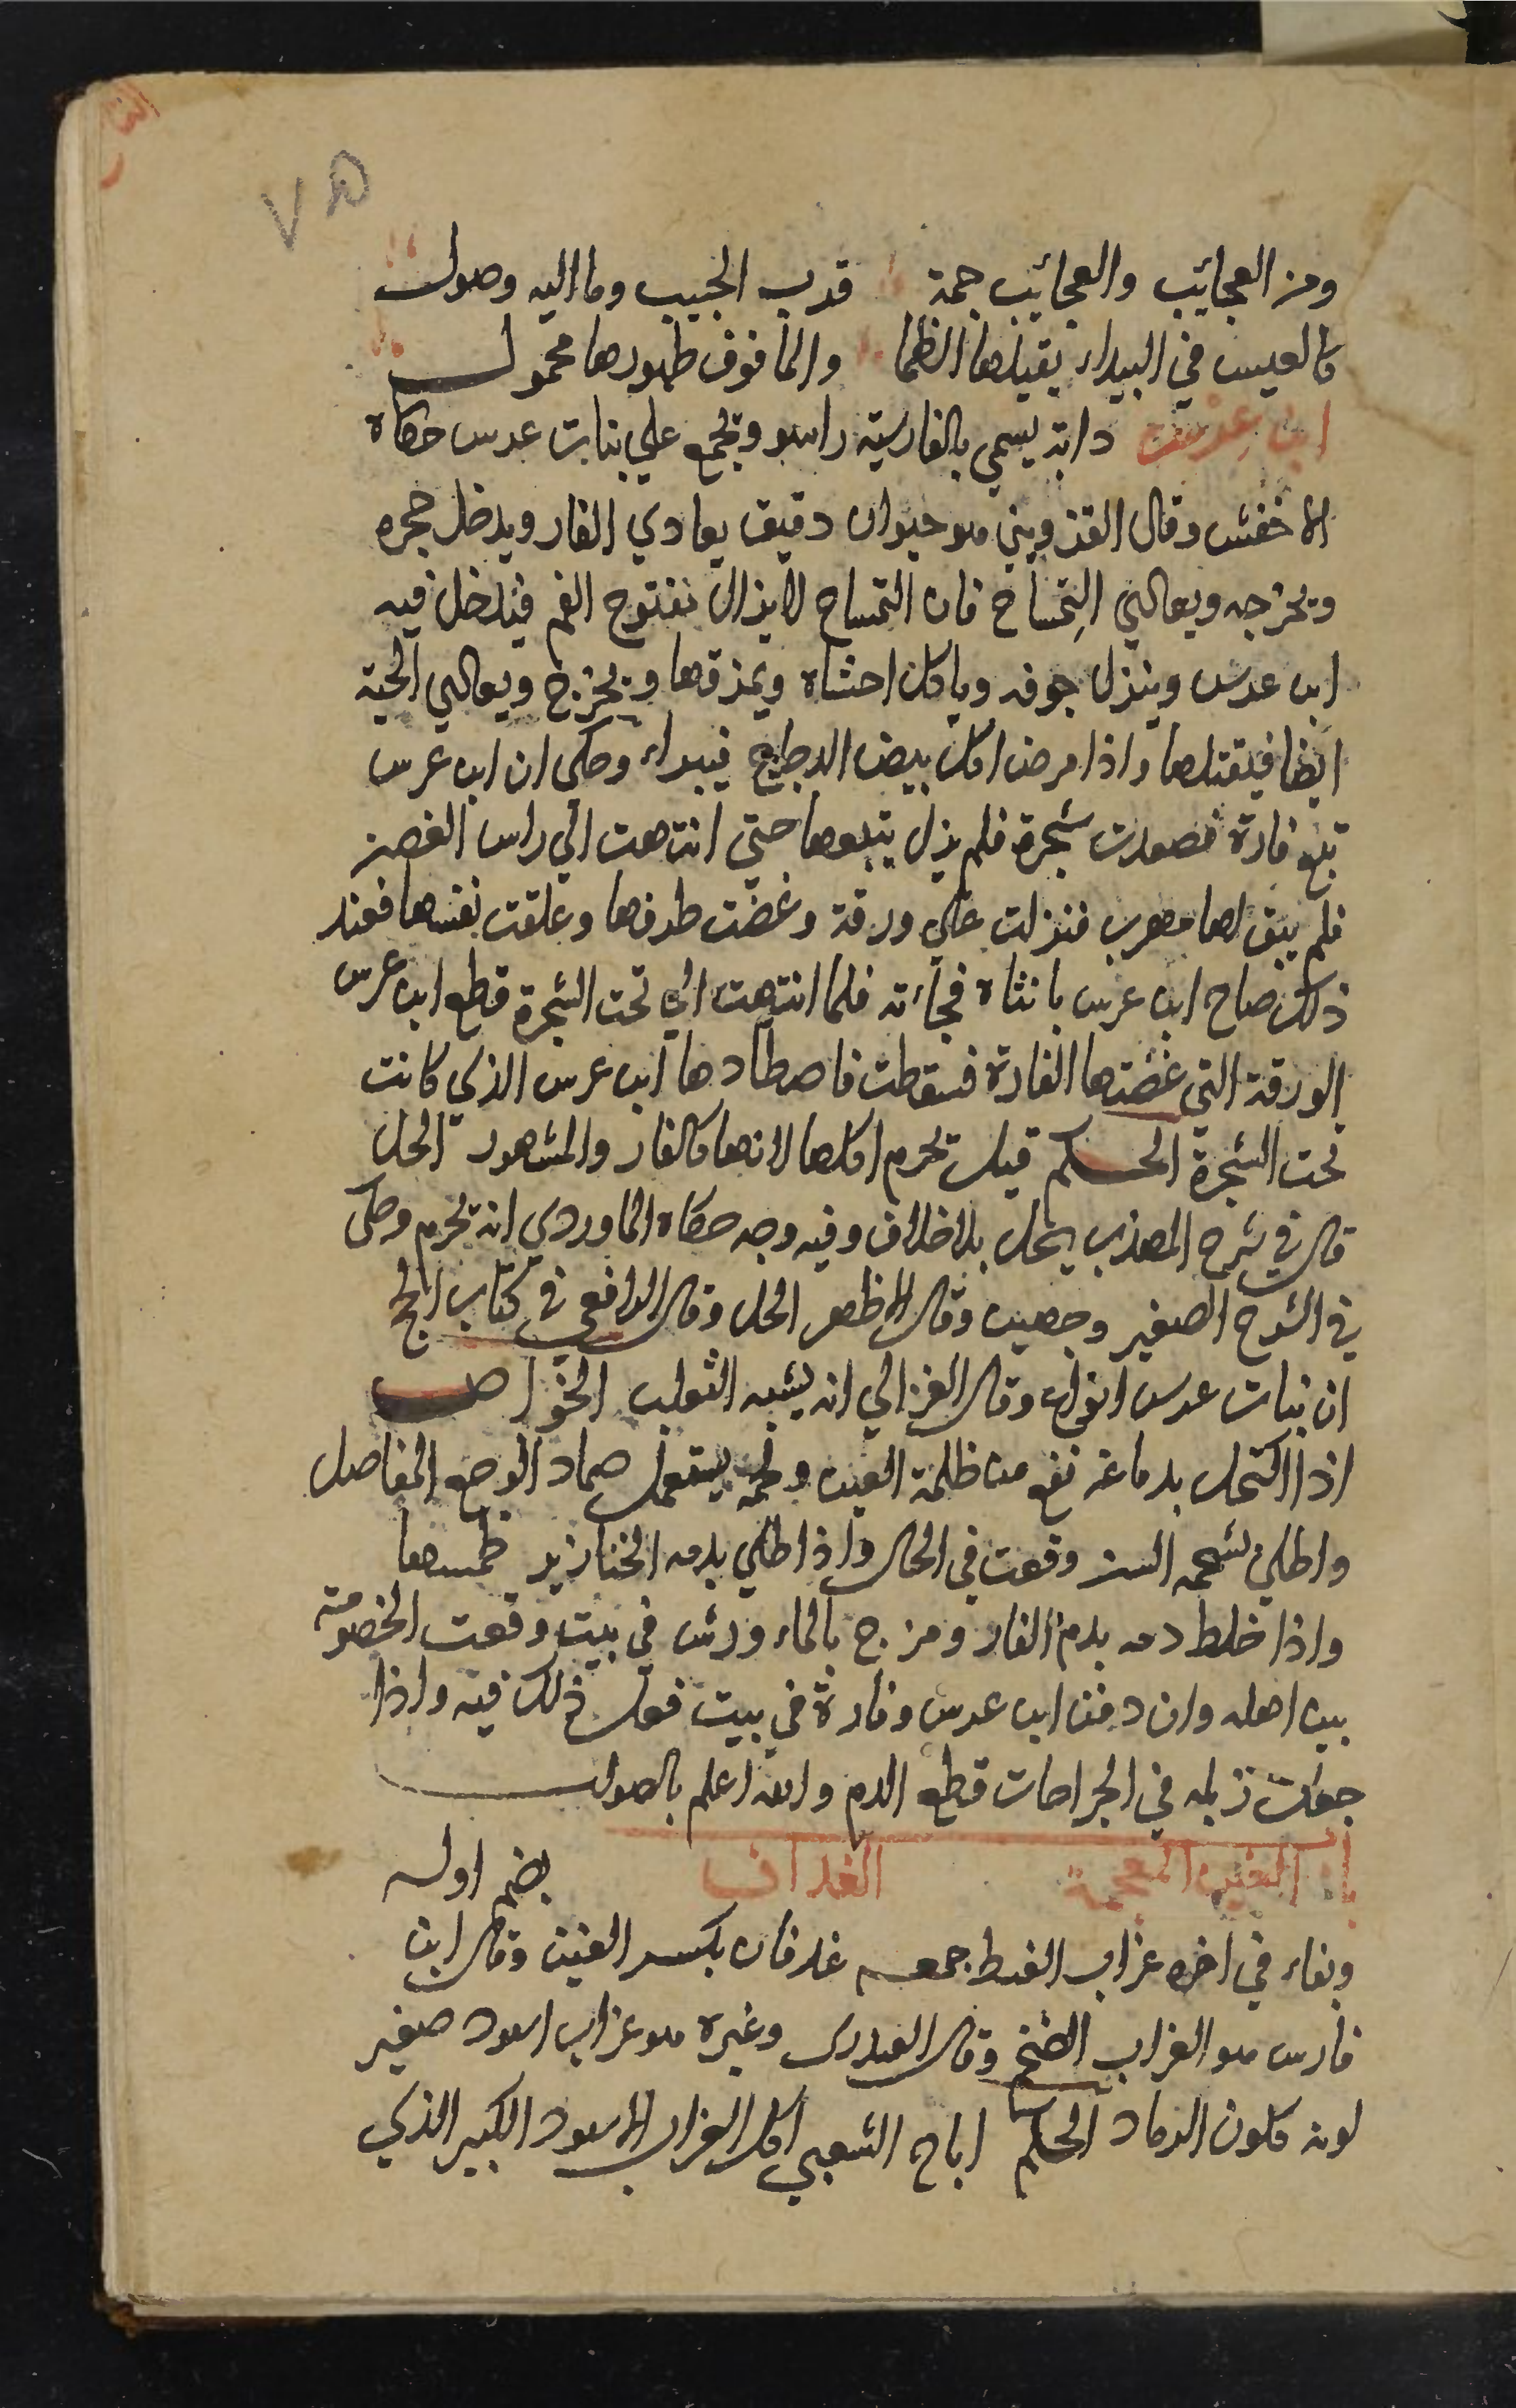 ٧٥
ومن العجائب والعجائيب جمة قرب الحبيب وما اليه وصول
كالعيس في البيداء يقتلها الظما والما فوق ظهورها محمول
ابن عرس دابة يسمي بالفارسية راسو وتجمع علي بنات عرس حكاه
الاخفش وقال القزويني هو حيوان دقيق يعادي الفار ويدخل جحره
ويخرجه ويعادي التمساح فان التمساح لا يزال مفتوح الفم فيدخل فيه
ابن عرس وينزل جوفه وياكل احشاه ويمزقها ويخرج ويعادي الحية
ايضا فيقتلها واذا مرض اكل بيض الدجاج فيبراء وحكى ان ابن عرس
تبع فارة فصعدت شجرة فلم يزل يتبعها حتي انتهت الي راس الغصن
فلم يبق لها مهرب فنزلت علي ورقة وعضت طرفها وعلقت نفسها فعند
ذلك صاح ابن عرس بانثاه فجاءته فلما انتهت الي تحت الشجرة قطع ابن عرس
الورقة التي عضتها الفارة فسقطت فاصطادها ابن عرس الذي كانت
تحت الشجرة الحكم قيل تحرم اكلها لانها كالفار والمشهور الحل
قال في شرح المهذب يحل بلا خلاف وفيه وجه حكاه الماوردي انه يحرم وحكى
في الشرح الصغير وجهين وقال الاظهر الحل وقال الرافعي في كتاب الحج
ان بنات عرس انواع وقال الغزالي انه يشبه الثعلب الخواص
اذا اكتحل بدماغه نفع من ظلمة العين ولحمه يستعمل ضماد الوجع المفاصل
واطلي بشحمه السن وقعت في الحال واذا طلي بدمه الخنازير طمسها
واذا خلط دمه بدم الفار ومزج بالماء ورش في بيت وقعت الخصومة
بين اهله وان دفن ابن عرس وفارة في بيت فعل ذلك فيه واذا
جعلت زبله في الجراحات قطع الدم والله اعلم بالصواب
باب الغين المعجمة الغداف بضم اوله
وبفاء في اخره غراب الغيط جمعه غدفان بكسر الغين وقال ابن
فارس هو الغراب الضخم وقال العبدرى وغيره هو غراب اسود صغير
لونه كلون الرماد الحكم اباح الشعبي اكل الغراب الاسود الكبير الذي